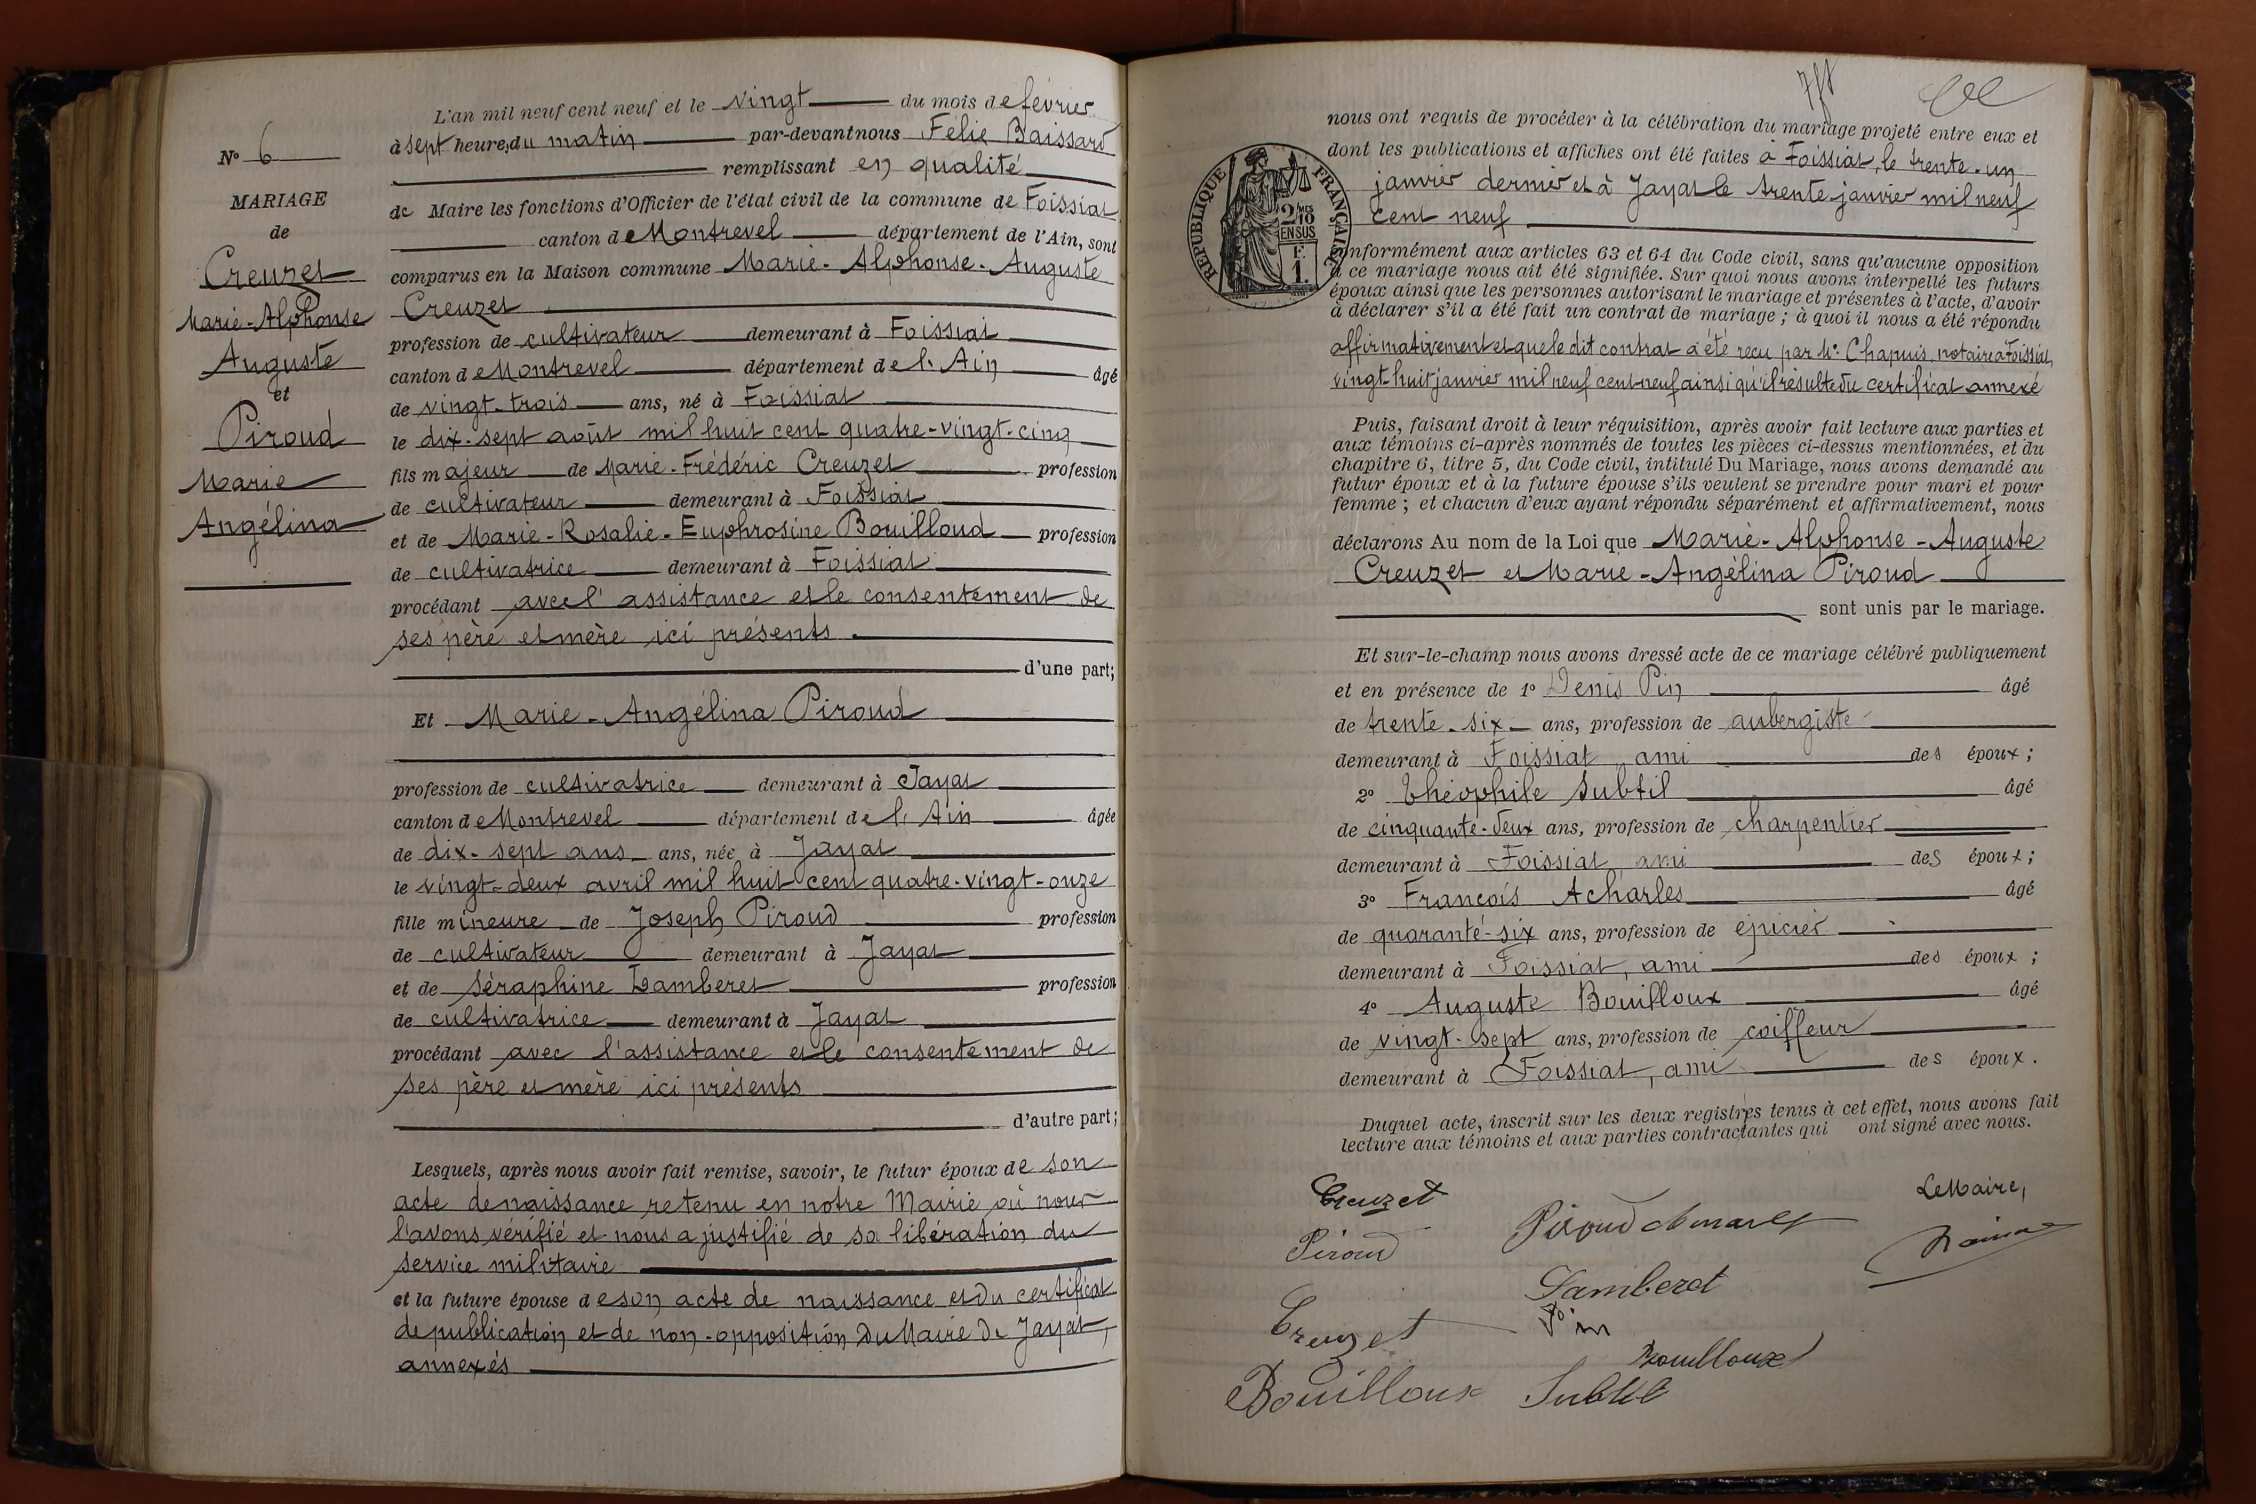 N° 6
MARIAGE
de
Creuzet
Marie-Alphonse
Auguste
et
Piroud
Marie
Angélina
L'an mil neuf cent neuf et le vingt du mois de février
à sept heures du matin par-devant nous Félix Baissard
remplissant en qualité
de Maire les fonctions d'Officier de l'état civil de la commune de Foissiat
canton de Montrevel département de l'Ain, sont
comparus en la Maison commune Marie-Alphonse-Auguste
Creuzet
profession de cultivateur demeurant à Foissiat
canton de Montrevel département de l'Ain âgé
de vingt-trois ans, né à Foissiat
le dix-sept août mil huit cent quatre-vingt-cinq
fils majeur de Marie-Frédéric Creuzet profession
de cultivateur demeurant à Foissiat
et de Marie-Rosalie-Euphrosine Bouilloud profession
de cultivatrice demeurant à Foissiat
procédant avec l'assistance et le consentement de
ses père et mère ici présents
d'une part;
Et Marie-Angélina Piroud
profession de cultivatrice demeurant à Jayat
canton de Montrevel département de l'Ain âgée
de dix-sept ans ans, née à Jayat
le vingt-deux avril mil huit cent quatre-vingt-onze
fille mineure de Joseph Piroud profession
de cultivateur demeurant à Jayat
et de Séraphine Lamberet profession
de cultivatrice demeurant à Jayat
procédant avec l'assistance et le consentement de
ses père et mère ici présents
d'autre part;
Lesquels, après nous avoir fait remise, savoir, le futur époux de son
acte de naissance retenu en notre Mairie où nous
l'avons vérifié et nous a justifié de sa libération du
service militaire
et la future épouse de son acte de naissance et du certificat
de publication et de non-opposition du Maire de Jayat,
annexés
nous ont requis de procéder à la célébration du mariage projeté entre eux et
dont les publications et affiches ont été faites à Foissiat, le trente-un
janvier dernier et à Jayat le trente janvier mil neuf
cent neuf
RÉPUBLIQUE FRANÇAISE
2/10MES
EN SUS
F.
1.
conformément aux articles 63 et 64 du Code civil, sans qu'aucune opposition
à ce mariage nous ait été signifiée. Sur quoi nous avons interpellé les futurs
époux ainsi que les personnes autorisant le mariage et présentes à l'acte, d'avoir
à déclarer s'il a été fait un contrat de mariage; à quoi il nous a été répondu
affirmativement et que le dit contrat a été reçu par Me Chapuis, notaire à Foissiat,
vingt huit janvier mil neuf cent neuf ainsi qu'il résulte du certificat annexé
Puis, faisant droit à leur réquisition, après avoir fait lecture aux parties et
aux témoins ci-après nommés de toutes les pièces ci-dessus mentionnées, et du
chapitre 6, titre 5, du Code civil, intitulé Du Mariage, nous avons demandé au
futur époux et à la future épouse s'ils veulent se prendre pour mari et pour
femme; et chacun d'eux ayant répondu séparément et affirmativement, nous
déclarons Au nom de la Loi que Marie-Alphonse-Auguste
Creuzet et Marie-Angélina Piroud
sont unis par le mariage.
Et sur-le-champ nous avons dressé acte de ce mariage célébré publiquement
et en présence de 1° Denis Pin âgé
de trente-six ans, profession de aubergiste
demeurant à Foissiat, ami des époux;
2° Théophile Subtil âgé
de cinquante-deux ans, profession de charpentier
demeurant à Foissiat, ami des époux;
3° François Acharles âgé
de quarante-six ans, profession de épicier
demeurant à Foissiat, ami des époux;
4° Auguste Bouilloux âgé
de vingt-sept ans, profession de coiffeur
demeurant à Foissiat, ami des époux.
Duquel acte, inscrit sur les deux registres tenus à cet effet, nous avons fait
lecture aux témoins et aux parties contractantes qui ont signé avec nous.
Creuzet
Le Maire,
Piroud
Piroud
Lamberet
Creuzet
Pin
Bouilloux
Bouilloux
Subtil